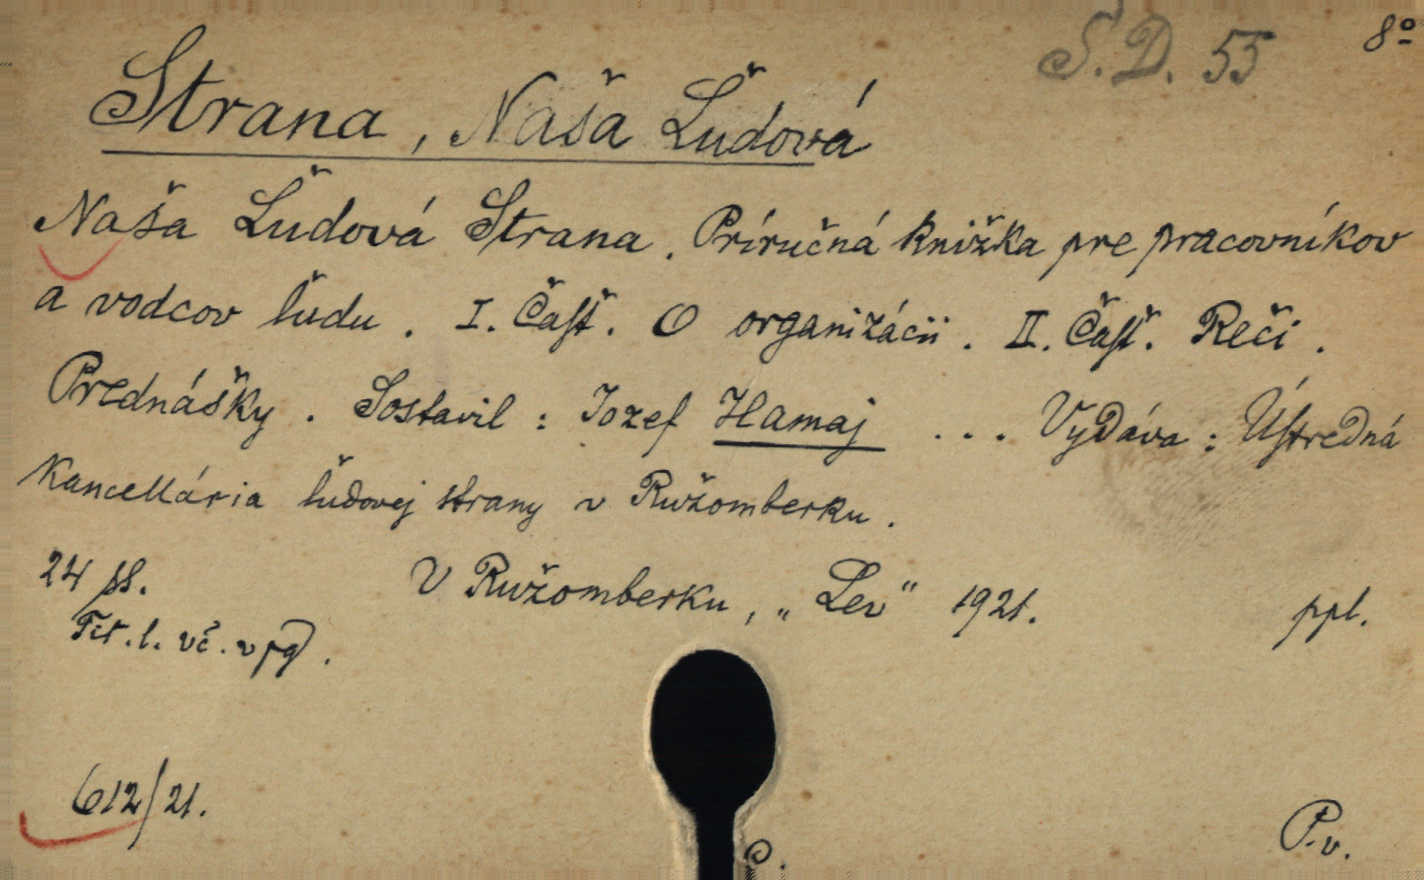 S.D. 55
8º
Strana, Naša Ľudová
Naša Ľudová Strana. Príručná knižka pre pracovníkov
a vodcov ľudu. I. Časť. O organizácii. II. Časť. Reči.
Prednášky. Sostavil: Jozef Hamaj ... Vydáva: Ústredná
Kancellária ľudovej strany v Ružomberku.
24 ss. V Ružomberku, „Lev“ 1921. ppl.
Tit. l. vč. v pg.
612/21.
P.v.